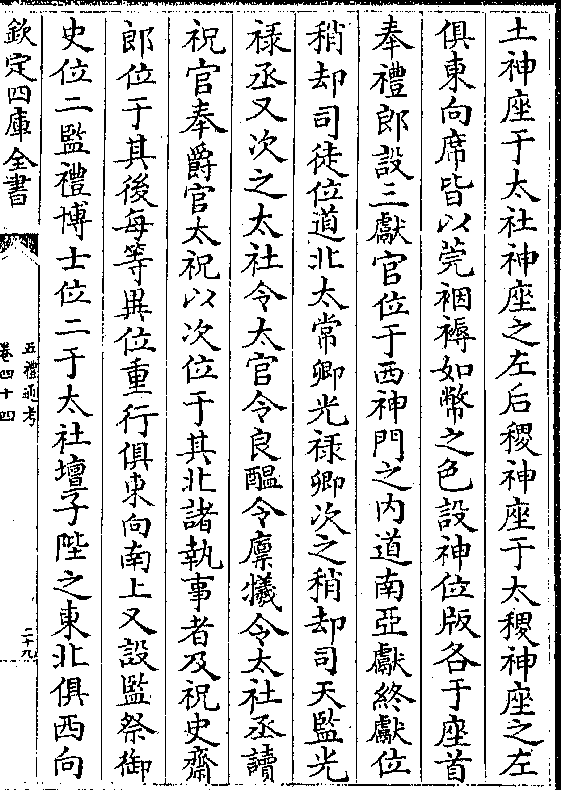 土神座于太社神座之左后稷神座于太稷神座之左
俱東向席皆以莞裀褥如幣之色設神位版各于座首
奉禮郎設三獻官位于西神門之内道南亞獻終獻位
稍却司徒位道北太常卿光禄卿次之稍却司天監光
禄丞又次之太社令太官令良醖令廪犧令太社丞讀
祝官奉爵官太祝以次位于其北諸執事者及祝史齋
郎位于其後每等異位重行俱東向南上又設監祭御
史位二監禮博士位二于太社壇子陛之東北俱西向
欽定四庫全書
五禮通考
卷四十四
二十九